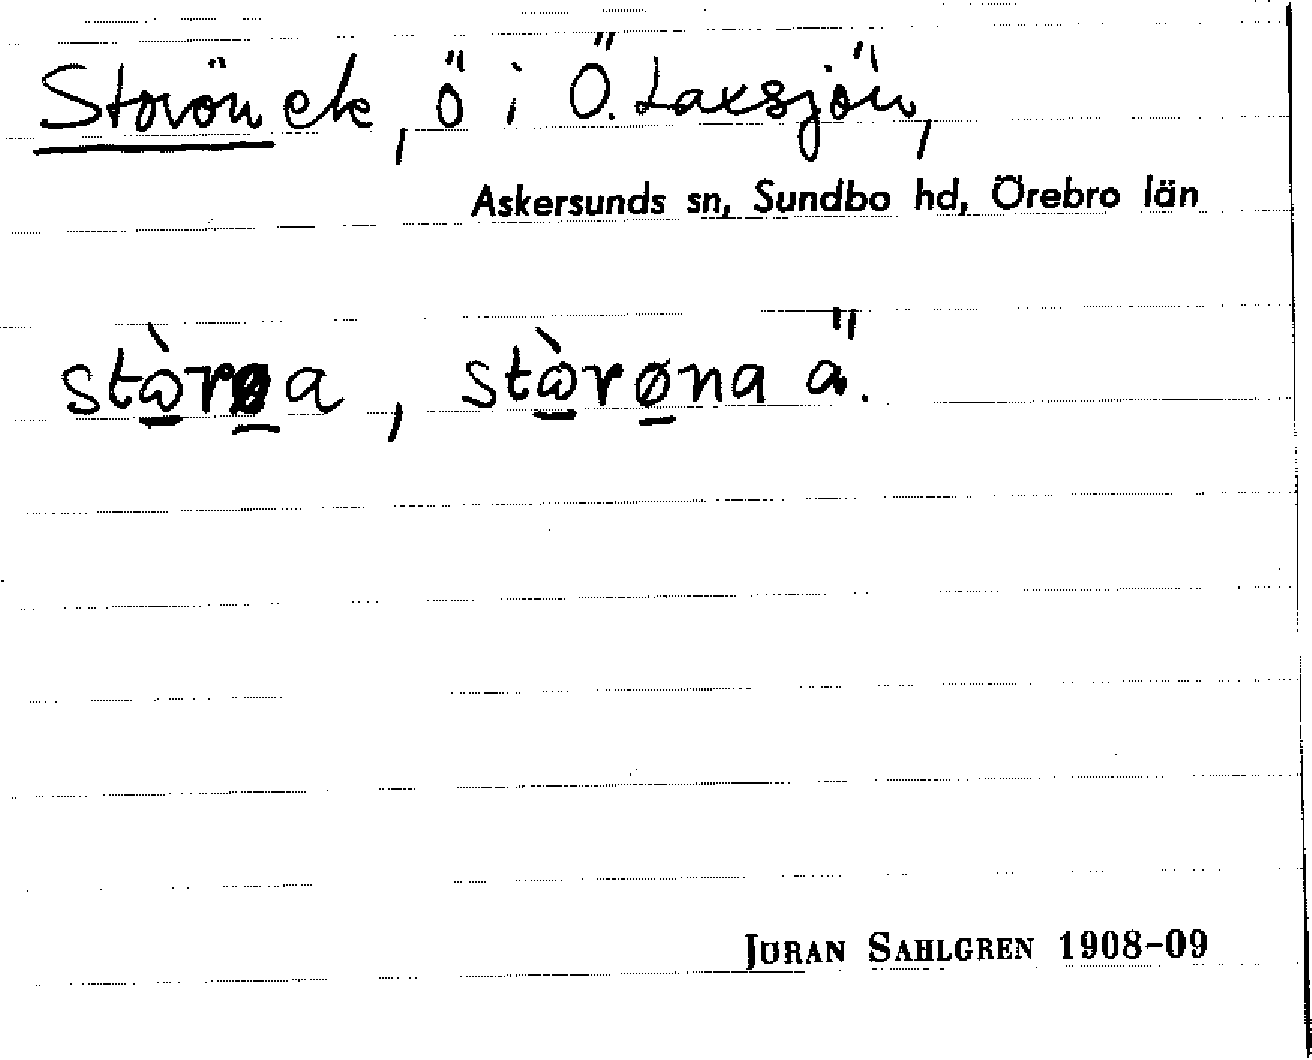 Storön ek, ö i Ö. Laxsjön,
Askersunds sn, Sundbo hd, Örebro län
stòrøa, stòrøna ä.
JÖRAN SAHLGREN 1908-09